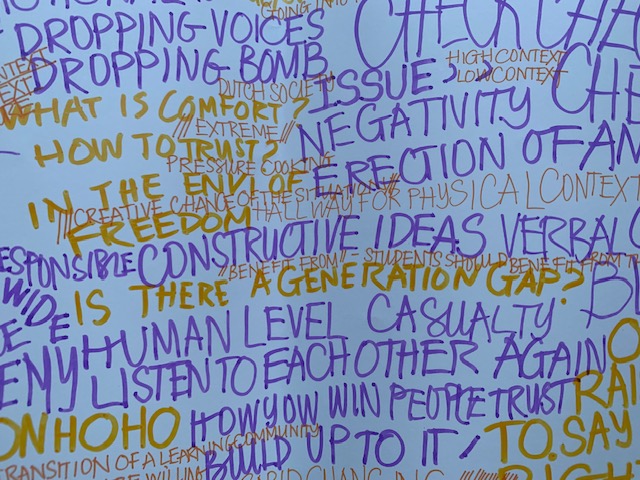 GOING INTO
DROPPING VOICES
CHECK CHE
DROPPING BOMB
HIGH CONTEXT
LOW CONTEXT
DUTCH SOCIETY
ISSUE
CHE
WHAT IS COMFORT?
NEGATIVITY
///EXTREME///
HOW TO TRUST?
PRESSURE COOKING
ERECTION OF AN
IN THE ENVI OF
FREEDOM
///CREATIVE CHANGE OF THE SITUATION///
HALLWAY FOR PHYSICAL CONTEXT
ESPONSIBLE CONSTRUCTIVE IDEAS VERBAL
"BENEFIT FROM" - STUDENTS SHOULD BENEFIT FROM TH
WIDE
IS THERE A GENERATION GAP?
HUMAN LEVEL CASUALTY
EMY LISTEN TO EACH OTHER AGAIN
ONHOHO
HOW YOW WIN PEOPLE TRUST
RAI
BUILD UP TO IT /
TO SAY
TRANSITION OF A LEARNING COMMUNITY
RAPID CHANGING
RIGHT